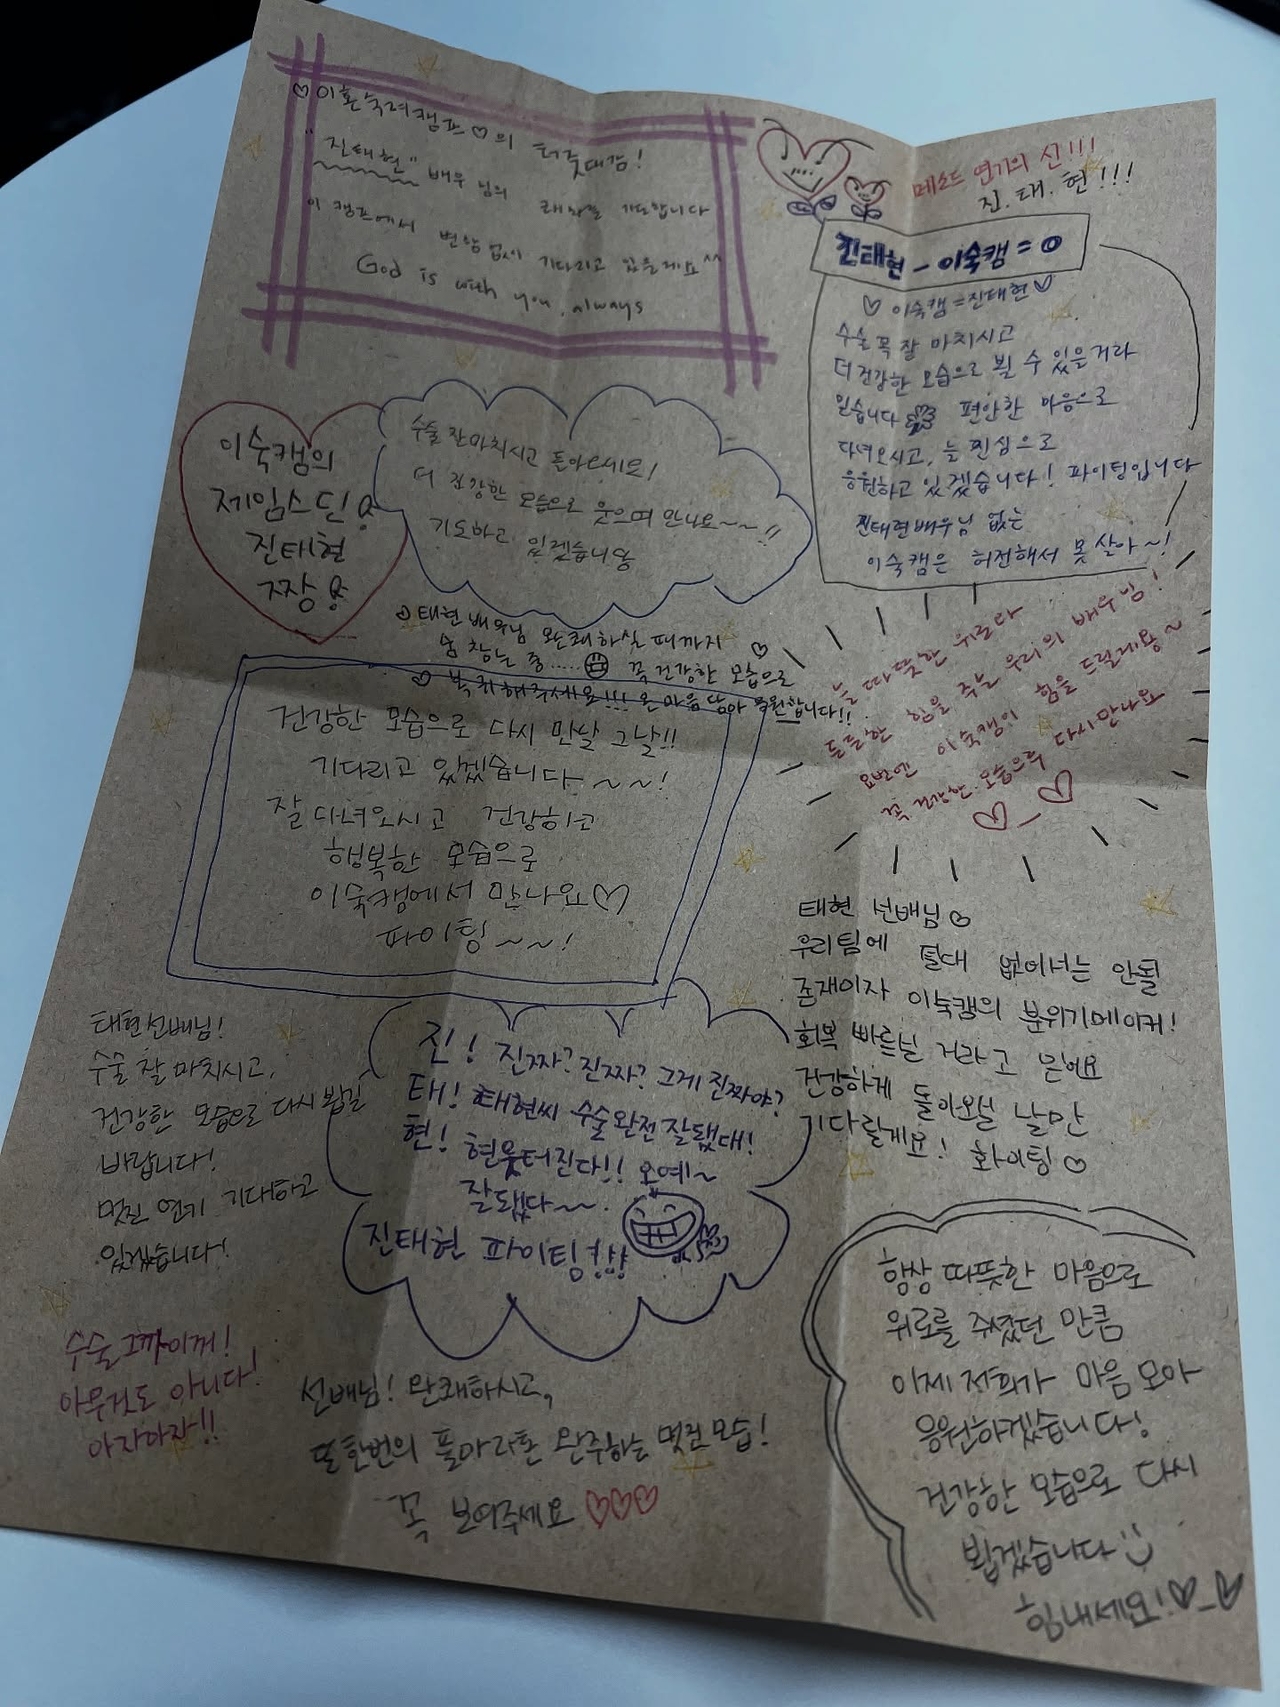 ♡이혼숙려캠프♡의 터줏대감!
"진태현" 배우 님의 쾌차를 기도합니다
이 캠프에서 변함없이 기다리고 있을게요^^
God is with you, always
메소드 연기의 신!!!
진.태.현!!!
진태현 - 이숙캠 = 0
♡ 이숙캠=진태현♡
수술 꼭 잘 마치시고
더 건강한 모습으로 뵐 수 있을거라
믿습니다 편안한 마음으로
다녀오시고, 늘 진심으로
응원하고 있겠습니다! 파이팅입니다
진태현배우님 없는
이숙캠은 허전해서 못 살아~!
이숙캠의
제임스딘
진태현
짱
수술 잘마치시고 돌아오세요!
더 건강한 모습으로 웃으며 만나요~~!!
기도하고 있겠습니당
태현배우님 완쾌하실 때까지
숨 참는 중...... 꼭 건강한 모습으로 ♡
♡ 복귀해주세요!!! 온 마음 담아 응원합니다!!
늘 따뜻한 위로와
든든한 힘을 주는 우리의 배우님!
요번엔 이숙캠이 힘을 드릴게용~
꼭 건강한 모습으로 다시만나요
♡ ♡
건강한 모습으로 다시 만날 그날!!
기다리고 있겠습니다~~!
잘 다녀오시고 건강하고
행복한 모습으로
이숙캠에서 만나요♡
파이팅~~!
태현 선배님♡
우리팀에 절대 없어서는 안될
존재이자 이숙캠의 분위기메이커!
회복 빠르실 거라고 믿어요
건강하게 돌아오실 날만
기다릴게요! 화이팅♡
태현선배님!
수술 잘 마치시고,
건강한 모습으로 다시 뵙길
바랍니다!
멋진 연기 기대하고
있겠습니다!
진! 진짜? 진짜? 그게 진짜야?
태! 태현씨 수술완전잘됐대!
현! 현웃터진다!! 오예~
잘됐다~~.
진태현 파이팅!!!
수술 그까이꺼!
아무것도 아니다!
아자아자!!
선배님! 완쾌하시고,
또 한번의 풀마라톤 완주하는 멋진모습!
꼭 보여주세요 ♡♡♡
항상 따뜻한 마음으로
위로를 주셨던 만큼
이제 저희가 마음 모아
응원하겠습니다!
건강한 모습으로 다시
뵙겠습니다 :)
힘내세요!♡♡